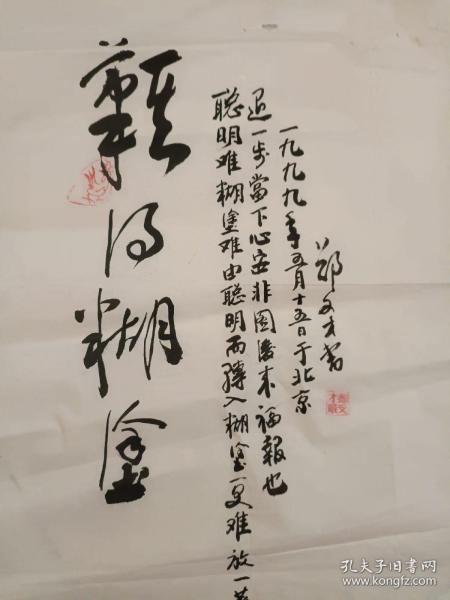 難得糊塗
聪明难糊塗难由聪明而轉入糊塗更难放一著
退一步當下心安非圖後来福報也
一九九九年五月十五日于北京
郑文才书
孔夫子旧书网
www.kongfz.com